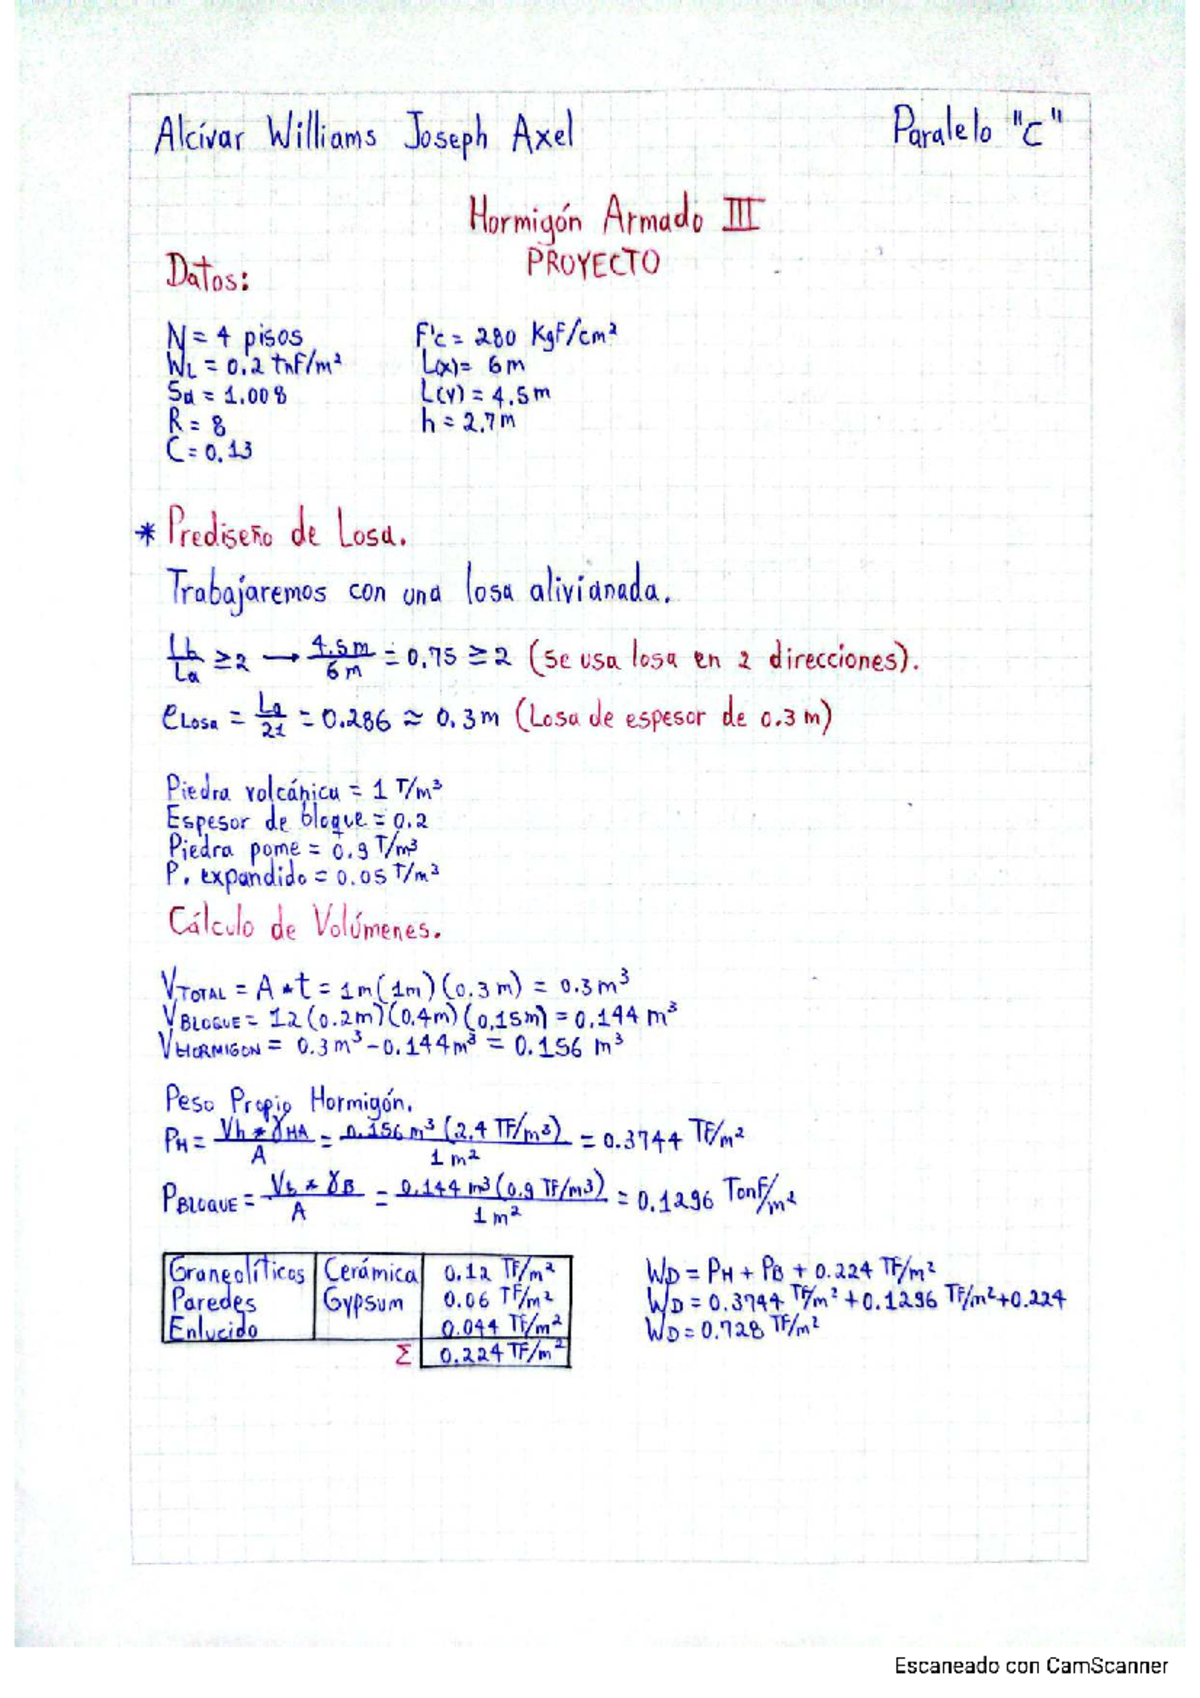 Alcívar Williams Joseph Axel Paralelo "C"
Hormigón Armado III
PROYECTO
Datos:
N = 4 pisos F'c = 280 Kgf/cm²
WL = 0.2 tnf/m² L(x) = 6m
Sa = 1.008 L(y) = 4.5m
R = 8 h = 2.7m
C = 0.13
* Prediseño de Losa.
Trabajaremos con una losa alivianada.
Lb/La ≥ 2 → 4.5m/6m = 0.75 ≥ 2 (se usa losa en 2 direcciones).
eLosa = La/21 = 0.286 ≈ 0.3m (Losa de espesor de 0.3m)
Piedra volcánica = 1 T/m³
Espesor de bloque = 0.2
Piedra pome = 0.9 T/m³
P. expandido = 0.05 T/m³
Cálculo de Volúmenes.
VTOTAL = A * t = 1m(1m)(0.3m) = 0.3m³
VBLOQUE = 12(0.2m)(0.4m)(0,15m) = 0.144 m³
VHORMIGON = 0.3m³ - 0.144m³ = 0.156 m³
Peso Propio Hormigón.
PH = Vh * γHA/A = 0.156m³(2.4 TF/m³)/1m² = 0.3744 TF/m²
PBLOQUE = Vb * γB/A = 0.144 m³(0.9 TF/m³)/1m² = 0.1296 Tonf/m²
Graneolíticos Cerámica 0.12 TF/m² WD = PH + PB + 0.224 TF/m²
Paredes Gypsum 0.06 TF/m² WD = 0.3744 TF/m² + 0.1296 TF/m² + 0.224
Enlucido 0.044 TF/m² WD = 0.728 TF/m²
Σ 0.224 TF/m²
Escaneado con CamScanner